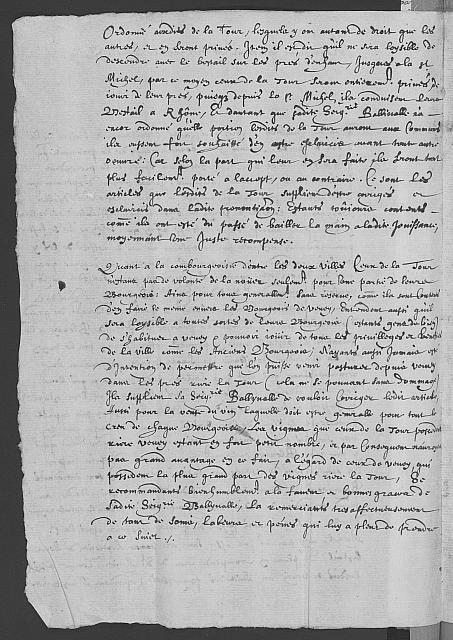 Ordonné ausdits de la Tour, lesquels y ont autant de droit que les
autres, et en seront privés. Item il est dit qu'il ne sera loysible de
descendre avec le bestail sur les prés d'enhau, jusques a la St
Michel, par ce moyen ceux de la Tour seront entierem.t privés de
jouir de leur prés, puisque depuis la St Michel, ils conduisent leur
Bestail a Et d'autant que ladite Seig.rie Ballivalle n'a
encor ordonné quelle portion lesdits de la Tour auront aux Communs
ils eussent fort souhaitté d'en estre esclaircis avant toute autre
oeuvre: Car selon la part qui leur en sera faite ils seront tant
plus facilem.t porté a l'accept, ou au contraire. Ce sont les
articles que lesdits de la Tour supplient d'estre corrigés et
esclaircis dans ladite prononciation: Estants tousjours contents
comme ils ont esté du passé de bailler la main a ladite Jouissance,
moyennant une juste recompense.
Quant a la combourgeoisie d'entre les deux Villes Ceux de la Tour
n'estant pas de volonté de la nouer seulem.t pour une partie de leurs
Bourgeois: Ains pour tous generallem.t sans reserve, comme ils sont contents
d'en faire le mesme envers les Bourgeois de Vevey, Entendent aussi qu'il
sera loysible a toutes sortes de leurs Bourgeois (estants gens de bien)
de s'habituer a Vevey et pouvoir jouir de tous les privilleges et benefices
de la ville comme les Anciens Bourgeois, N'ayants aussi jamais esté
d'intention de permettre que l'on puisse venir pasturer depuis Vevey
dans les prés riere la Tour (cela ne se pouvant sans dommage)
Ils supplient sa Seig.rie Ballivalle de vouloir corriger ledit article,
Item pour la vente du vin laquelle doit estre generalle pour tout le
creu de chaque Bourgeoisie Les vignes que ceux de la Tour possedent
riere Vevey estant en fort petit nombre, et par consequent n'auront
pas grand avantage en ce fait, a l'égard de ceux de Vevey qui
possedent la plus grand part des vignes riere la Tour, Se
recommandants bien humblem.t a la faveur et bonnes graces de
sadite Seig.rie Ballivalle, la remerciants tres affectueusement
de tant de soins, labeurs et peines qu'il luy a pleu de prendre
a ce sujet ./.